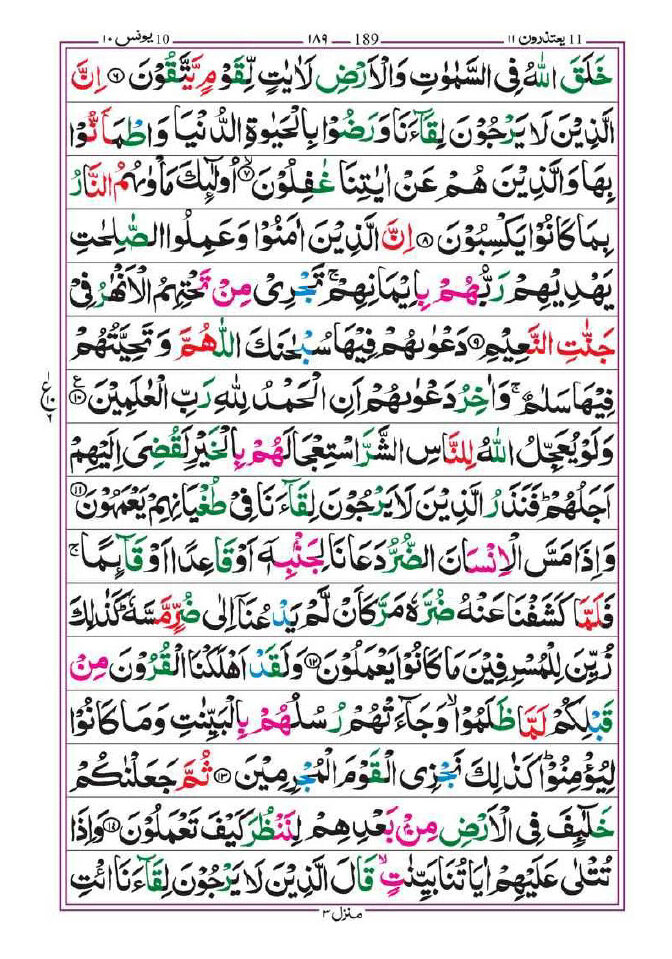 11 يعتذرون ١١ 189 ١٨٩ 10 يونس ١٠
خَلَقَ اللّٰهُ فِى السَّمٰوٰتِ وَالْاَرْضِ لَاٰيٰتٍ لِّقَوْمٍ يَّتَّقُوْنَ ۝۶ اِنَّ
الَّذِيْنَ لَا يَرْجُوْنَ لِقَآءَنَا وَرَضُوْا بِالْحَيٰوةِ الدُّنْيَا وَاطْمَاَنُّوْا
بِهَا وَالَّذِيْنَ هُمْ عَنْ اٰيٰتِنَا غٰفِلُوْنَ ۙ۝۷ اُولٰٓئِكَ مَاْوٰىهُمُ النَّارُ
بِمَا كَانُوْا يَكْسِبُوْنَ ۝۸ اِنَّ الَّذِيْنَ اٰمَنُوْا وَعَمِلُوا الصّٰلِحٰتِ
يَهْدِيْهِمْ رَبُّهُمْ بِاِيْمَانِهِمْ ۚ تَجْرِىْ مِنْ تَحْتِهِمُ الْاَنْهٰرُ فِىْ
جَنّٰتِ النَّعِيْمِ ۝۹ دَعْوٰىهُمْ فِيْهَا سُبْحٰنَكَ اللّٰهُمَّ وَتَحِيَّتُهُمْ
فِيْهَا سَلٰمٌ ۚ وَاٰخِرُ دَعْوٰىهُمْ اَنِ الْحَمْدُ لِلّٰهِ رَبِّ الْعٰلَمِيْنَ ۝۱۰
وَلَوْ يُعَجِّلُ اللّٰهُ لِلنَّاسِ الشَّرَّ اسْتِعْجَالَهُمْ بِالْخَيْرِ لَقُضِىَ اِلَيْهِمْ
اَجَلُهُمْ ؕ فَنَذَرُ الَّذِيْنَ لَا يَرْجُوْنَ لِقَآءَنَا فِىْ طُغْيَانِهِمْ يَعْمَهُوْنَ ۝۱۱
وَاِذَا مَسَّ الْاِنْسَانَ الضُّرُّ دَعَانَا لِجَنْۢبِهٖۤ اَوْ قَاعِدًا اَوْ قَآئِمًا ۚ
فَلَمَّا كَشَفْنَا عَنْهُ ضُرَّهٗ مَرَّ كَاَنْ لَّمْ يَدْعُنَاۤ اِلٰى ضُرٍّ مَّسَّهٗ ؕ كَذٰلِكَ
زُيِّنَ لِلْمُسْرِفِيْنَ مَا كَانُوْا يَعْمَلُوْنَ ۝۱۲ وَلَقَدْ اَهْلَكْنَا الْقُرُوْنَ مِنْ
قَبْلِكُمْ لَمَّا ظَلَمُوْا ۙ وَجَآءَتْهُمْ رُسُلُهُمْ بِالْبَيِّنٰتِ وَمَا كَانُوْا
لِيُؤْمِنُوْا ؕ كَذٰلِكَ نَجْزِى الْقَوْمَ الْمُجْرِمِيْنَ ۝۱۳ ثُمَّ جَعَلْنٰكُمْ
خَلٰٓئِفَ فِى الْاَرْضِ مِنْۢ بَعْدِهِمْ لِنَنْظُرَ كَيْفَ تَعْمَلُوْنَ ۝۱۴ وَاِذَا
تُتْلٰى عَلَيْهِمْ اٰيَاتُنَا بَيِّنٰتٍ ۙ قَالَ الَّذِيْنَ لَا يَرْجُوْنَ لِقَآءَنَا ائْتِ
منزل ٣